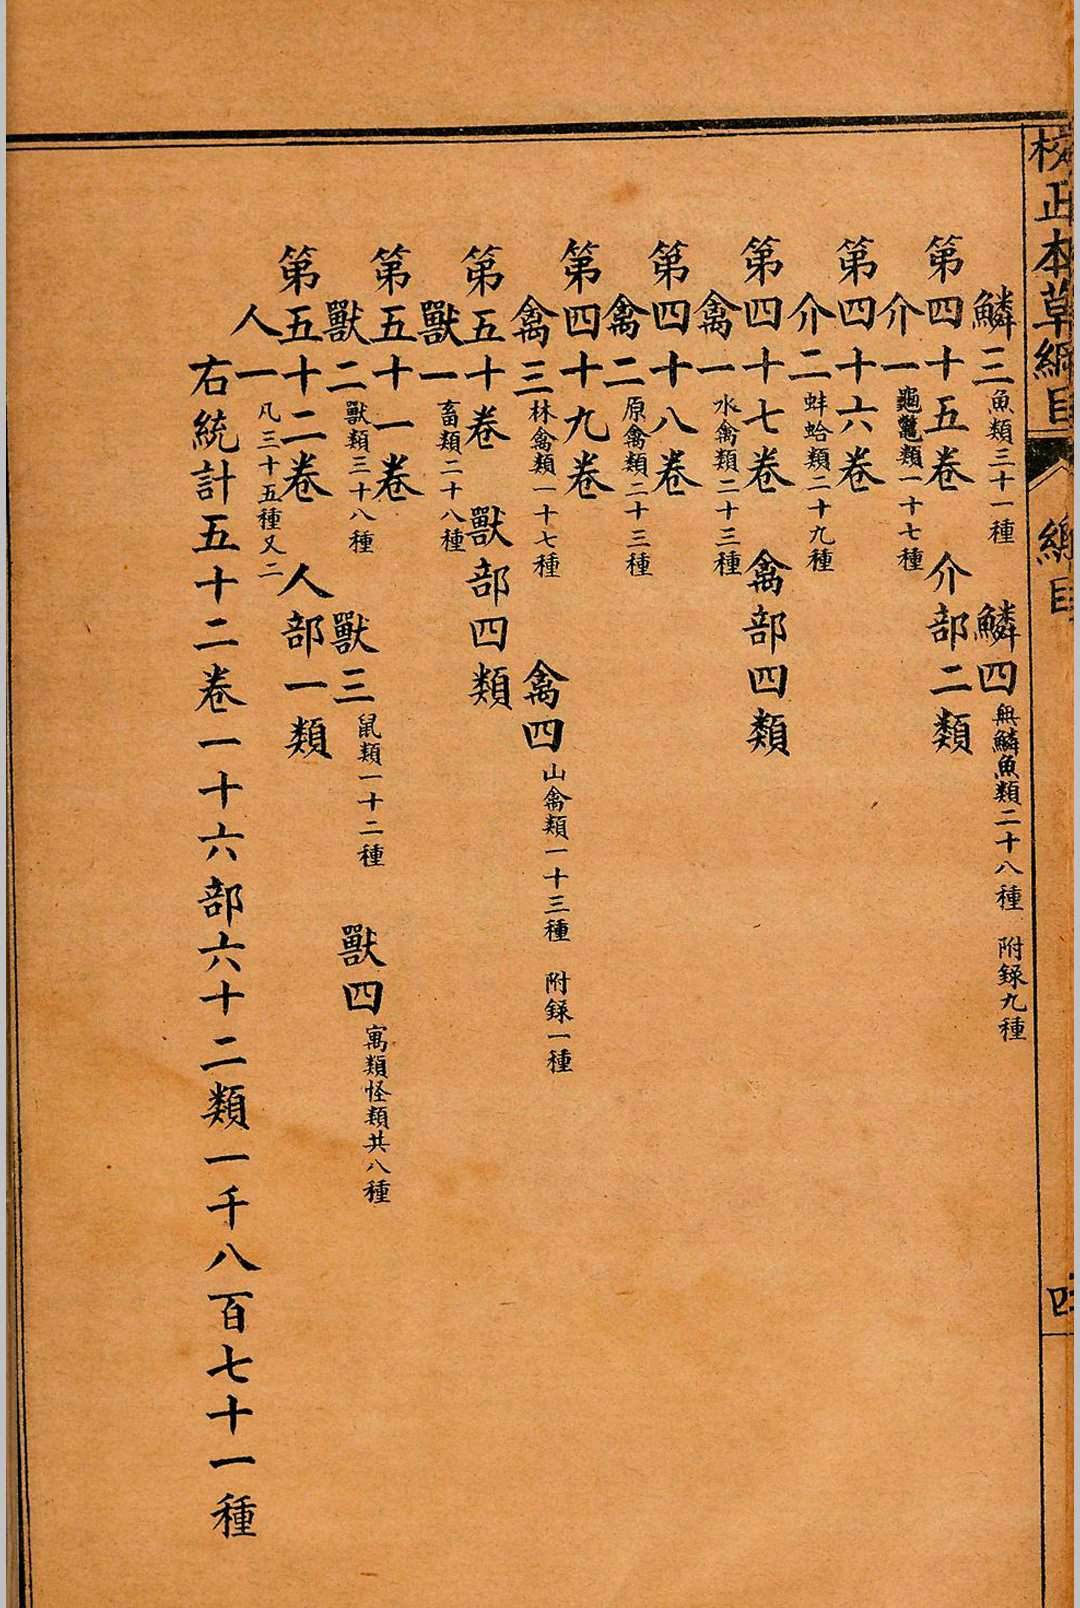 校正本草綱目
綱目
四
鱗三 魚類三十一種 鱗四 無鱗魚類二十八種 附錄九種
第四十五卷 介部二類
介一 龜鼈類一十七種
第四十六卷
介二 蚌蛤類二十九種
第四十七卷 禽部四類
禽一 水禽類二十三種
第四十八卷
禽二 原禽類二十三種
第四十九卷
禽三 林禽類一十七種 禽四 山禽類一十三種 附錄一種
第五十卷 獸部四類
獸一 畜類二十八種
第五十一卷
獸二 獸類三十八種 獸三 鼠類一十二種 獸四 寓類怪類共八種
第五十二卷 人部一類
人一 凡三十五種又二
右統計五十二卷一十六部六十二類一千八百七十一種